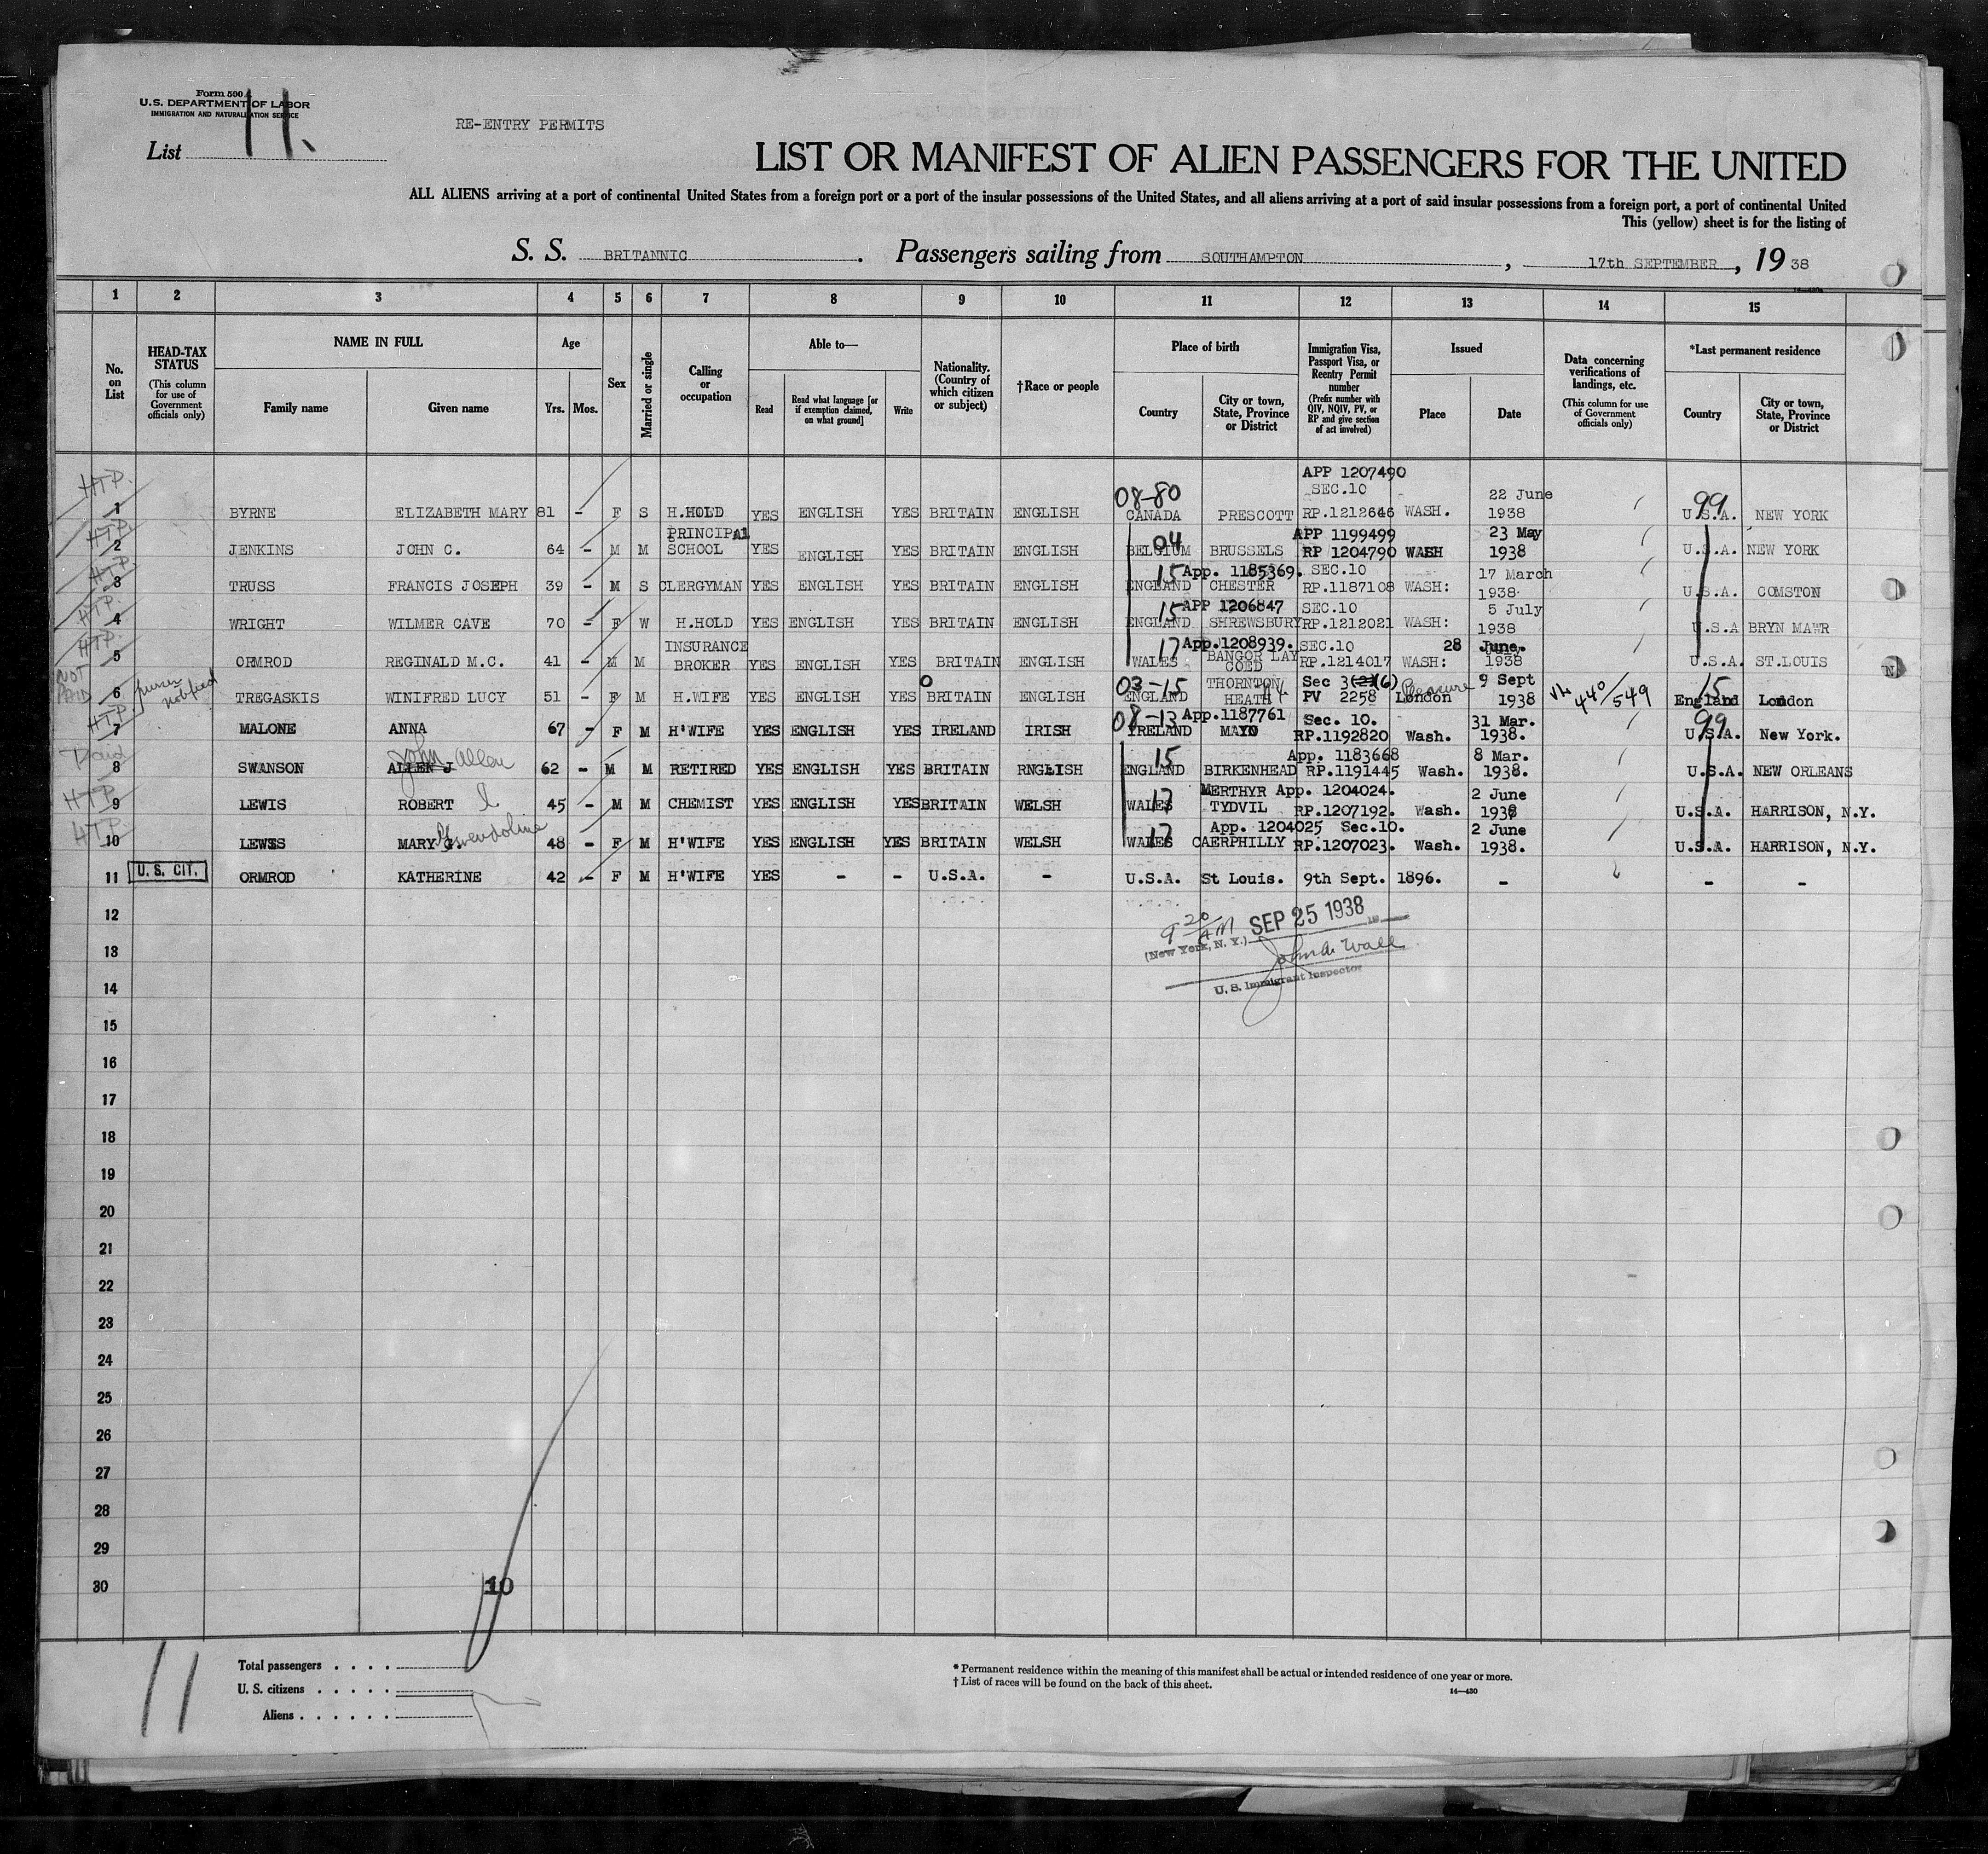 Form 500 A
U.S. DEPARTMENT OF LABOR
IMMIGRATION AND NATURALIZATION SERVICE
List 11.
RE-ENTRY PERMITS
LIST OR MANIFEST OF ALIEN PASSENGERS FOR THE UNITED
ALL ALIENS arriving at a port of continental United States from a foreign port or a port of the insular possessions of the United States, and all aliens arriving at a port of said insular possessions from a foreign port, a port of continental United
This (yellow) sheet is for the listing of
S. S. BRITANNIC. Passengers sailing from SOUTHAMPTON, 17th SEPTEMBER, 1938
1 2 3 4 5 6 7 8 9 10 11 12 13 14 15
No. on List
HEAD-TAX STATUS (This column for use of Government officials only)
NAME IN FULL
Family name Given name
Age
Yrs. Mos.
Sex
Married or single
Calling or occupation
Able to—
Read Read what language [or if exemption claimed, on what ground] Write
Nationality. (Country of which citizen or subject)
†Race or people
Place of birth
Country City or town, State, Province or District
Immigration Visa, Passport Visa, or Reentry Permit number (Prefix number with QIV, NQIV, PV, or RP and give section of act involved)
Issued
Place Date
Data concerning verifications of landings, etc. (This column for use of Government officials only)
*Last permanent residence
Country City or town, State, Province or District
HTP. 08-80 APP 1207490 SEC.10 22 June 99
1 BYRNE ELIZABETH MARY 81 - F S H.HOLD YES ENGLISH YES BRITAIN ENGLISH CANADA PRESCOTT RP.1212646 WASH. 1938 U.S.A. NEW YORK
HTP. PRINCIPAL 04 APP 1199499 23 May
2 JENKINS JOHN C. 64 - M M SCHOOL YES ENGLISH YES BRITAIN ENGLISH BELGIUM BRUSSELS RP 1204790 WASH 1938 U.S.A. NEW YORK
HTP. 15 App. 1185369. SEC.10 17 March
3 TRUSS FRANCIS JOSEPH 39 - M S CLERGYMAN YES ENGLISH YES BRITAIN ENGLISH ENGLAND CHESTER RP.1187108 WASH: 1938. U.S.A. COMSTON
HTP. 15 APP 1206847 SEC.10 5 July
4 WRIGHT WILMER CAVE 70 - F W H.HOLD YES ENGLISH YES BRITAIN ENGLISH ENGLAND SHREWSBURY RP.1212021 WASH: 1938 U.S.A BRYN MAWR
HTP. INSURANCE 17 App.1208939. SEC.10 28 June.
5 ORMROD REGINALD M.C. 41 - M M BROKER YES ENGLISH YES BRITAIN ENGLISH WALES BANGOR LAY COED RP.1214017 WASH: 1938 U.S.A. ST.LOUIS
NOT PAID purser notified 03-15 THORNTON Sec 3(2)(6) Pleasure 9 Sept 15
6 TREGASKIS WINIFRED LUCY 51 - F M H.WIFE YES ENGLISH YES BRITAIN ENGLISH ENGLAND HEATH PV 2258 London 1938 440/549 England London
HTP. 08-13 App.1187761 Sec. 10. 31 Mar. 99
7 MALONE ANNA 67 - F M H'WIFE YES ENGLISH YES IRELAND IRISH IRELAND MAYO RP.1192820 Wash. 1938. U.S.A. New York.
Paid John Allen 15 App. 1183668 8 Mar.
8 SWANSON ALLEN J 62 - M M RETIRED YES ENGLISH YES BRITAIN RNGLISH ENGLAND BIRKENHEAD RP.1191445 Wash. 1938. U.S.A. NEW ORLEANS
HTP. 17 MERTHYR App. 1204024. 2 June
9 LEWIS ROBERT 45 - M M CHEMIST YES ENGLISH YES BRITAIN WELSH WALES TYDVIL RP.1207192. Wash. 1938 U.S.A. HARRISON, N.Y.
HTP. Gwendoline 17 App. 1204025 Sec.10. 2 June
10 LEWIS MARY G. 48 - F M H'WIFE YES ENGLISH YES BRITAIN WELSH WALES CAERPHILLY RP.1207023. Wash. 1938. U.S.A. HARRISON, N.Y.
11 U.S. CIT. ORMROD KATHERINE 42 - F M H'WIFE YES - - U.S.A. - U.S.A. St Louis. 9th Sept. 1896. - - -
12
9 20 AM SEP 25 1938 19
(New York, N. Y.)
13
John A. Wall
U. S. Immigrant Inspector
14
15
16
17
18
19
20
21
22
23
24
25
26
27
28
29
30
10
11
Total passengers . . . .
U. S. citizens . . . . .
Aliens . . . . . .
* Permanent residence within the meaning of this manifest shall be actual or intended residence of one year or more.
† List of races will be found on the back of this sheet.
14—430